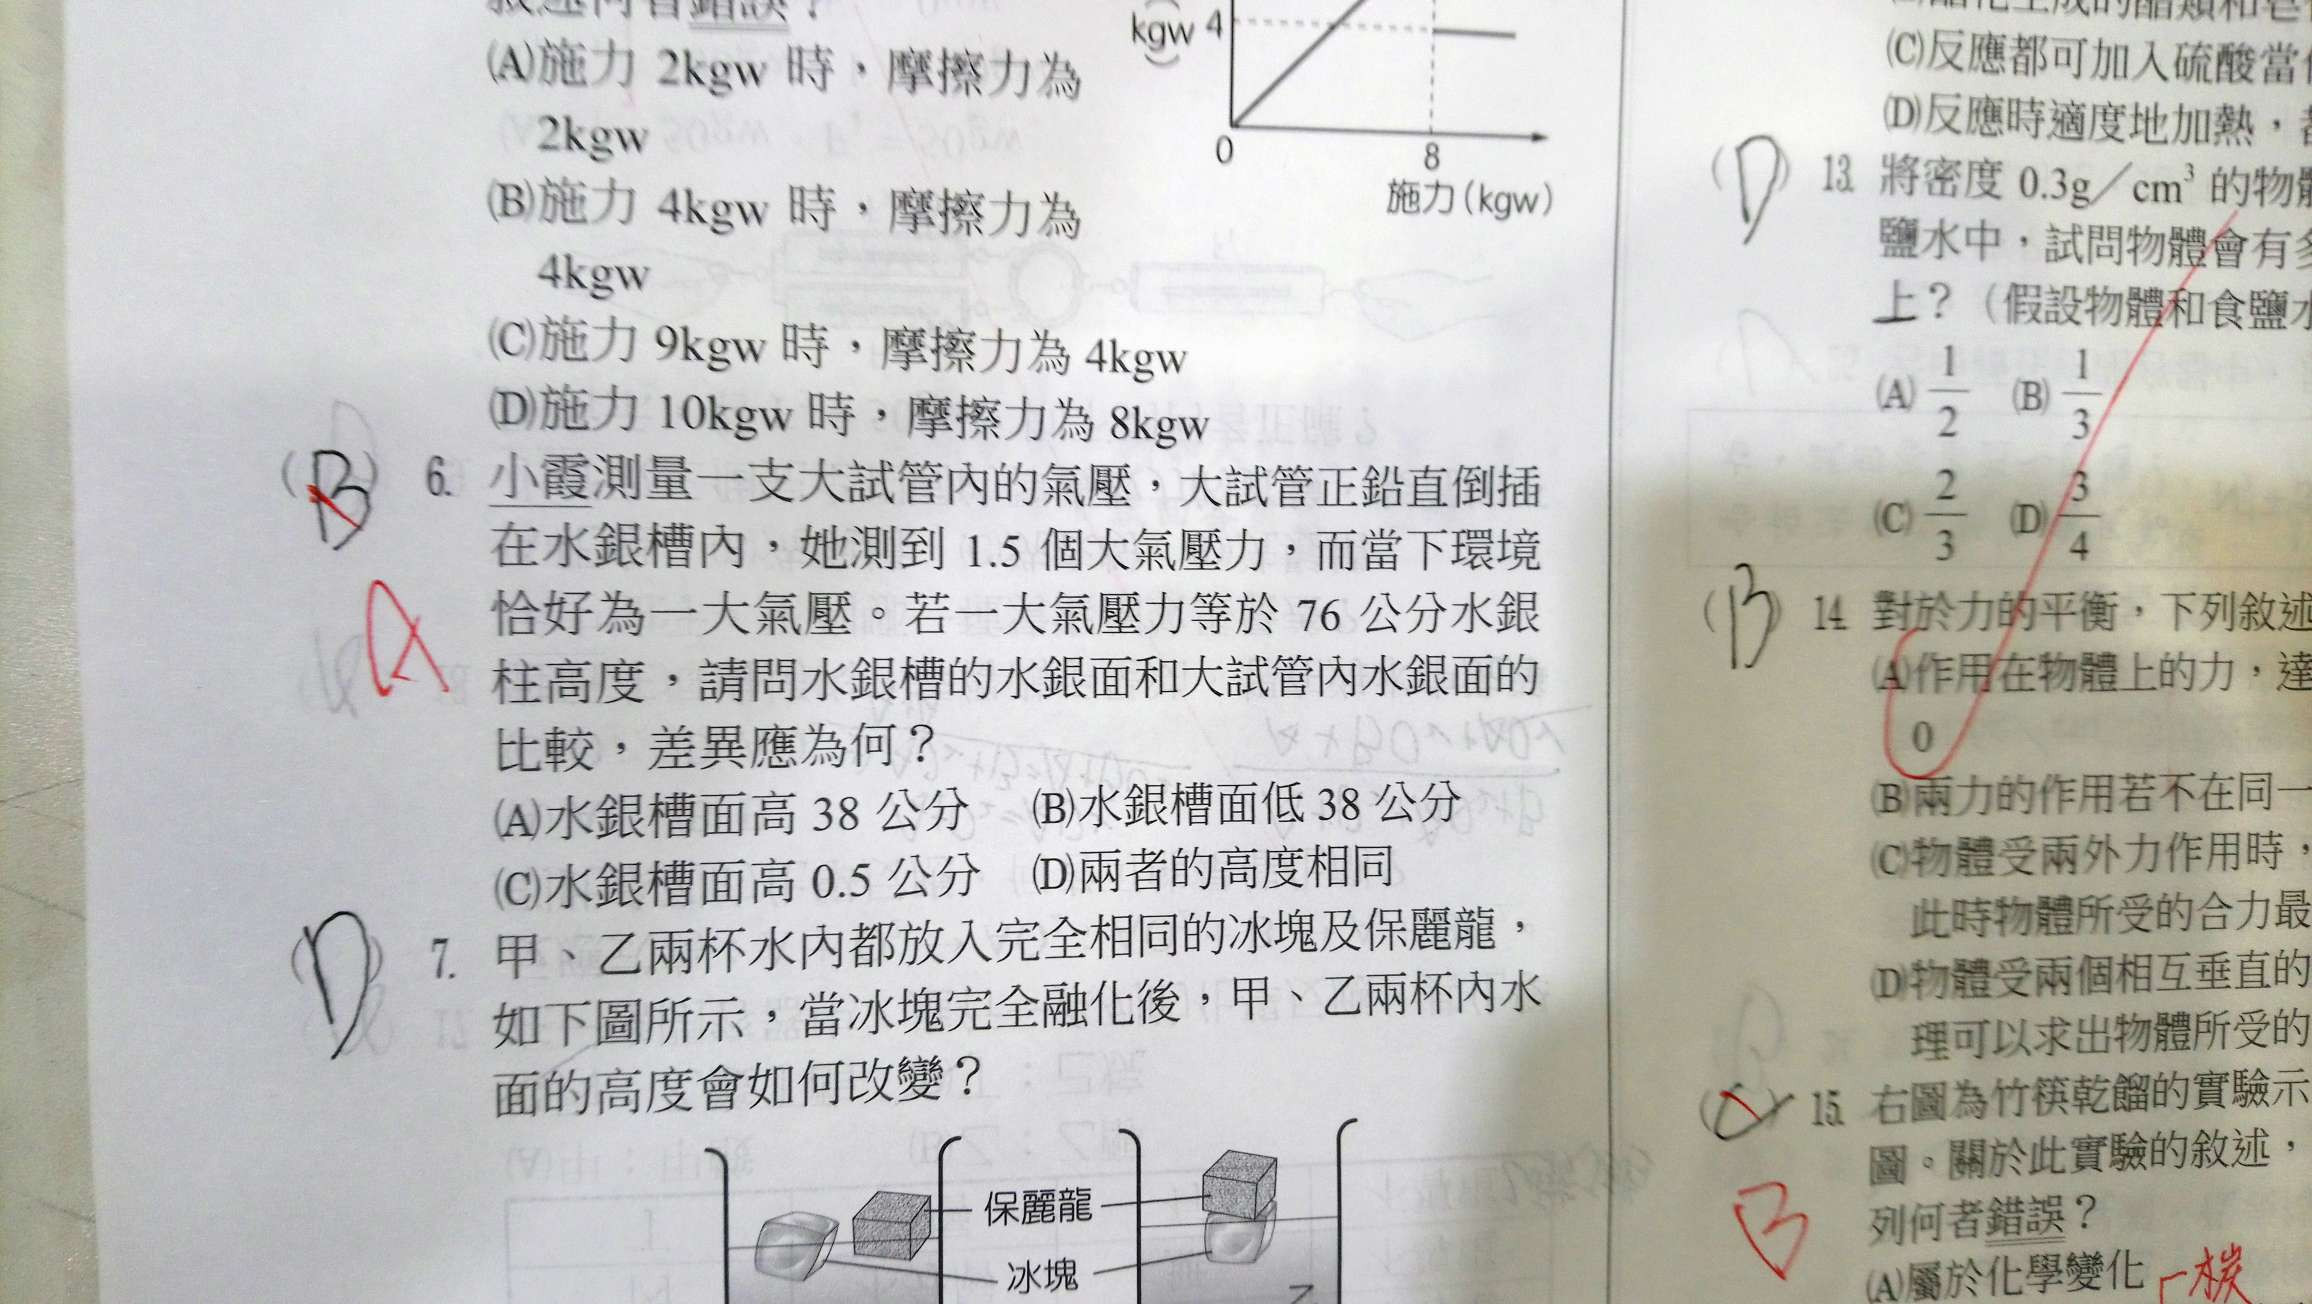 敘述何者錯誤？
(A)施力 2kgw 時，摩擦力為
2kgw
(B)施力 4kgw 時，摩擦力為
4kgw
(C)施力 9kgw 時，摩擦力為 4kgw
(D)施力 10kgw 時，摩擦力為 8kgw
kgw
4
0
8
施力(kgw)
(B) 6. 小霞測量一支大試管內的氣壓，大試管正鉛直倒插
在水銀槽內，她測到 1.5 個大氣壓力，而當下環境
恰好為一大氣壓。若一大氣壓力等於 76 公分水銀
A
柱高度，請問水銀槽的水銀面和大試管內水銀面的
比較，差異應為何？
(A)水銀槽面高 38 公分 (B)水銀槽面低 38 公分
(C)水銀槽面高 0.5 公分 (D)兩者的高度相同
(D) 7. 甲、乙兩杯水內都放入完全相同的冰塊及保麗龍，
如下圖所示，當冰塊完全融化後，甲、乙兩杯內水
面的高度會如何改變？
保麗龍
冰塊
乙
(C)反應都可加入硫酸當
(D)反應時適度地加熱，
(D) 13. 將密度 0.3g／cm³ 的物體
鹽水中，試問物體會有多
上？（假設物體和食鹽水
(A) 1/2 (B) 1/3
(C) 2/3 (D) 3/4
(B) 14. 對於力的平衡，下列敘述
(A)作用在物體上的力，達
0
(B)兩力的作用若不在同一
(C)物體受兩外力作用時，
此時物體所受的合力最
(D)物體受兩個相互垂直的
理可以求出物體所受的
(C) 15. 右圖為竹筷乾餾的實驗示
圖。關於此實驗的敘述，
B
列何者錯誤？
(A)屬於化學變化
碳